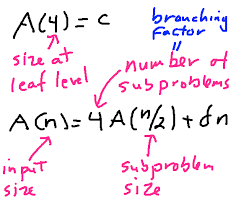 A(4) = c
branching
factor
=
size at
leaf level
number of
subproblems
A(n) = 4 A(n/2) + δn
input
size
subproblem
size